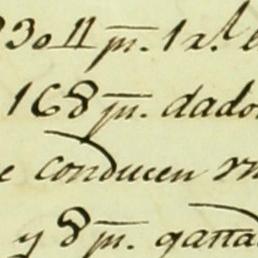 93011 pr. 1 rl.
168 pr. dado
e conducen m
y 8 pr. gasta